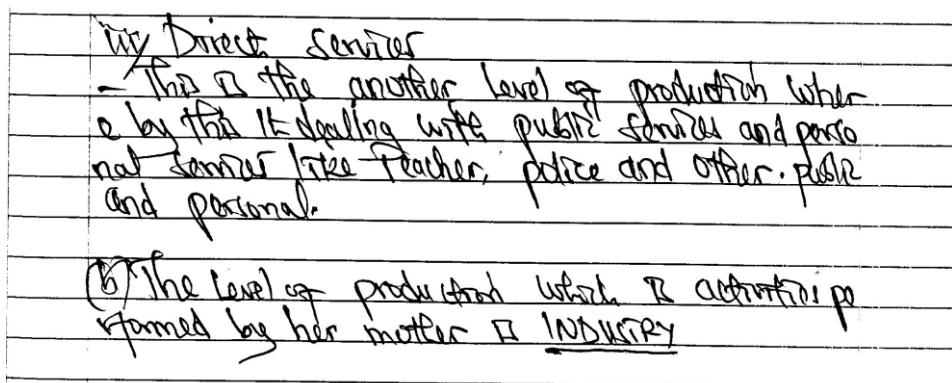 iii/ Direct Services
- This is the another level of production wher
e by this it dealing with public services and perso
nal services like teacher, police and other. public
and personal.
(b) The level of production which is activities pe
rformed by her mother is INDUSTRY